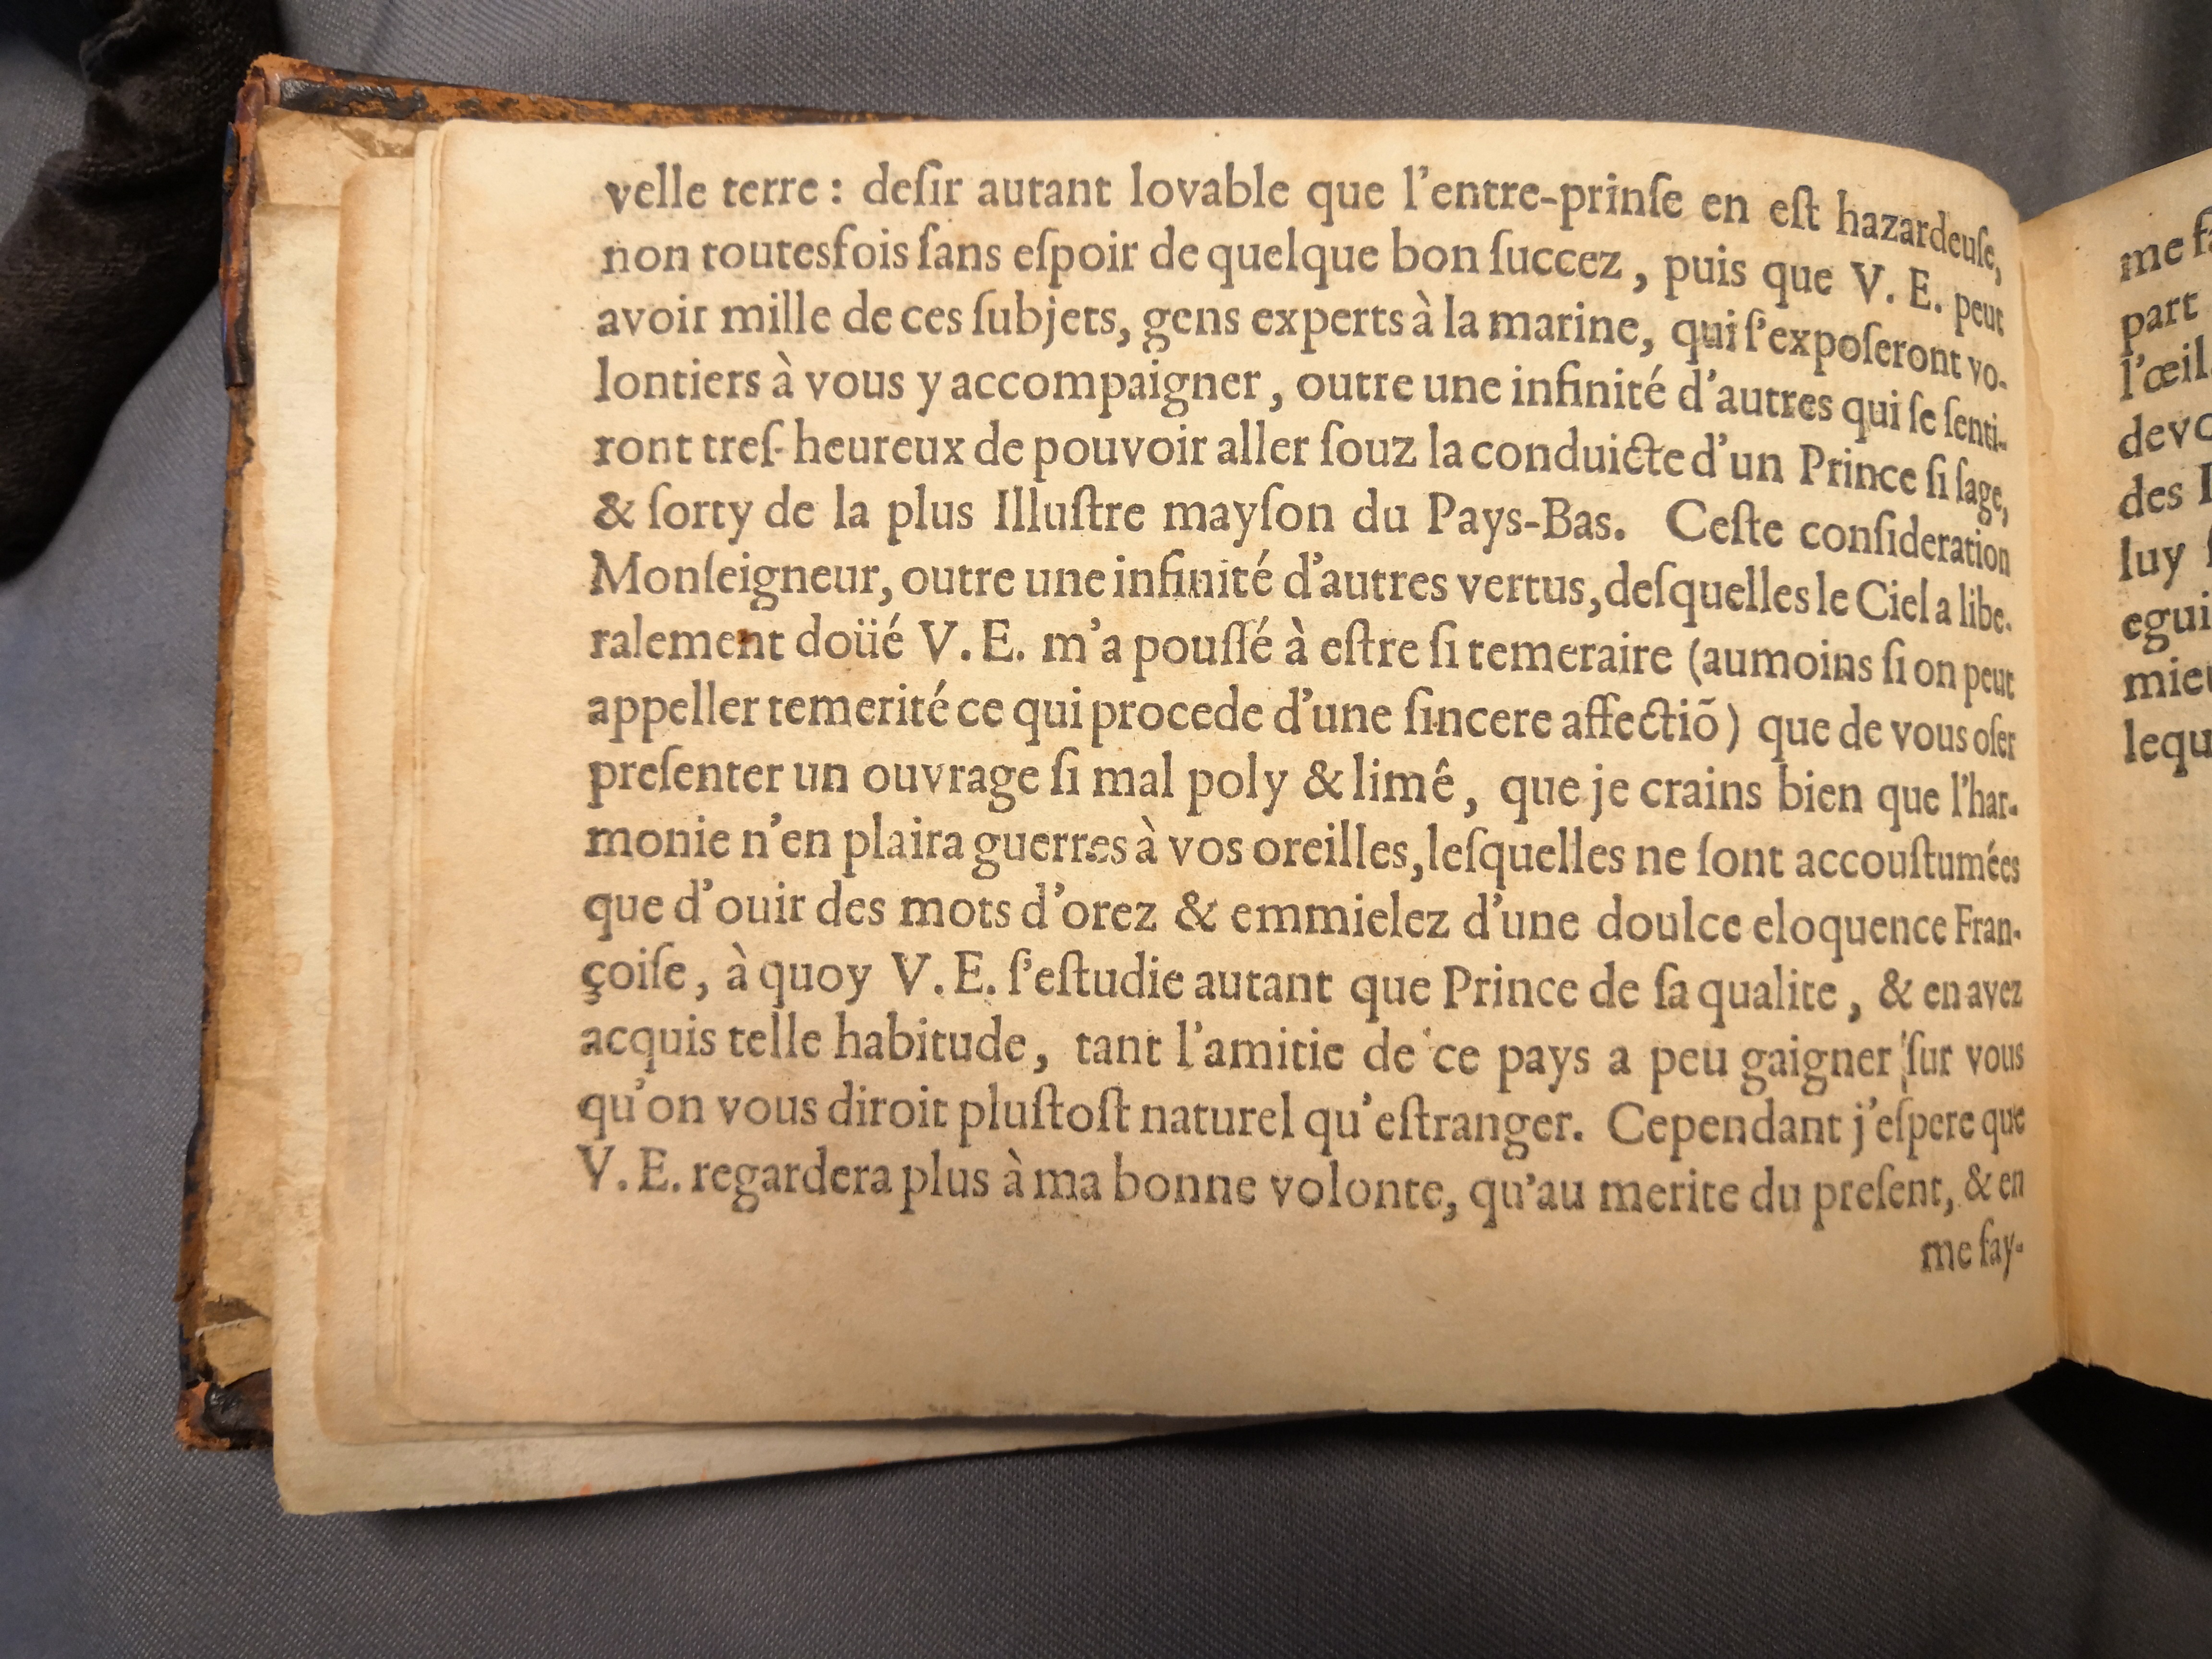 velle terre : deſir autant lovable que l'entre-prinſe en eſt hazardeuſe,
non toutesfois ſans eſpoir de quelque bon ſuccez, puis que V. E. peut
avoir mille de ces ſubjets, gens experts à la marine, qui ſ'expoſeront vo-
lontiers à vous y accompaigner, outre une infinité d'autres qui ſe ſenti-
ront treſ-heureux de pouvoir aller ſouz la conduicte d'un Prince ſi ſage,
& ſorty de la plus Illuſtre mayſon du Pays-Bas. Ceſte conſideration
Monſeigneur, outre une infinité d'autres vertus, deſquelles le Ciel a libe-
ralement doüé V. E. m'a pouſſé à eſtre ſi temeraire (aumoins ſi on peut
appeller temerité ce qui procede d'une ſincere affectiõ) que de vous oſer
preſenter un ouvrage ſi mal poly & limê, que je crains bien que l'har-
monie n'en plaira guerres à vos oreilles, leſquelles ne ſont accouſtumées
que d'ouir des mots d'orez & emmielez d'une doulce eloquence Fran-
çoiſe, à quoy V. E. ſ'eſtudie autant que Prince de ſa qualite, & en avez
acquis telle habitude, tant l'amitie de ce pays a peu gaigner ſur vous
qu'on vous diroit pluſtoſt naturel qu'eſtranger. Cependant j'eſpere que
V. E. regardera plus à ma bonne volonte, qu'au merite du preſent, & en
me fay-
me
part
l'œil
des
luy